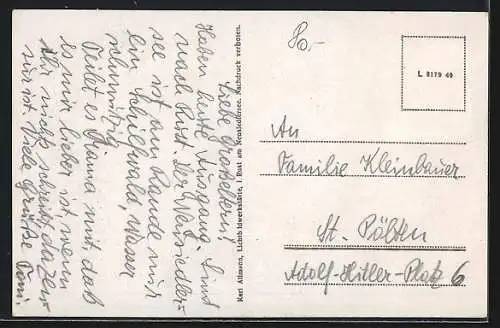 Liebe Großeltern!
Haben heute Ausgang. Sind
nach Rust. Der Neusiedler-
see ist am Rande nur
ein Schilfwald, Wasser
schmutzig
Teilet es Mama mit, daß
es mir lieber ist, wenn
Ihr nichts schreibt, da zen-
sur ist. Viele Grüße Toni
Karl Allmann, Lichtbildwerkstätte, i. Rust am Neusiedlersee. Nachdruck verboten.
L 8179 40
An
Familie Kleinbauer
St. Pölten
Adolf-Hitler-Platz 6